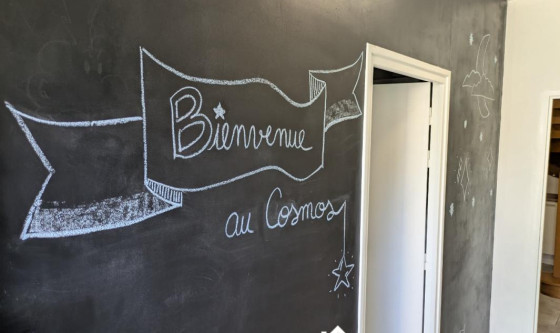 Bienvenue
au Cosmos